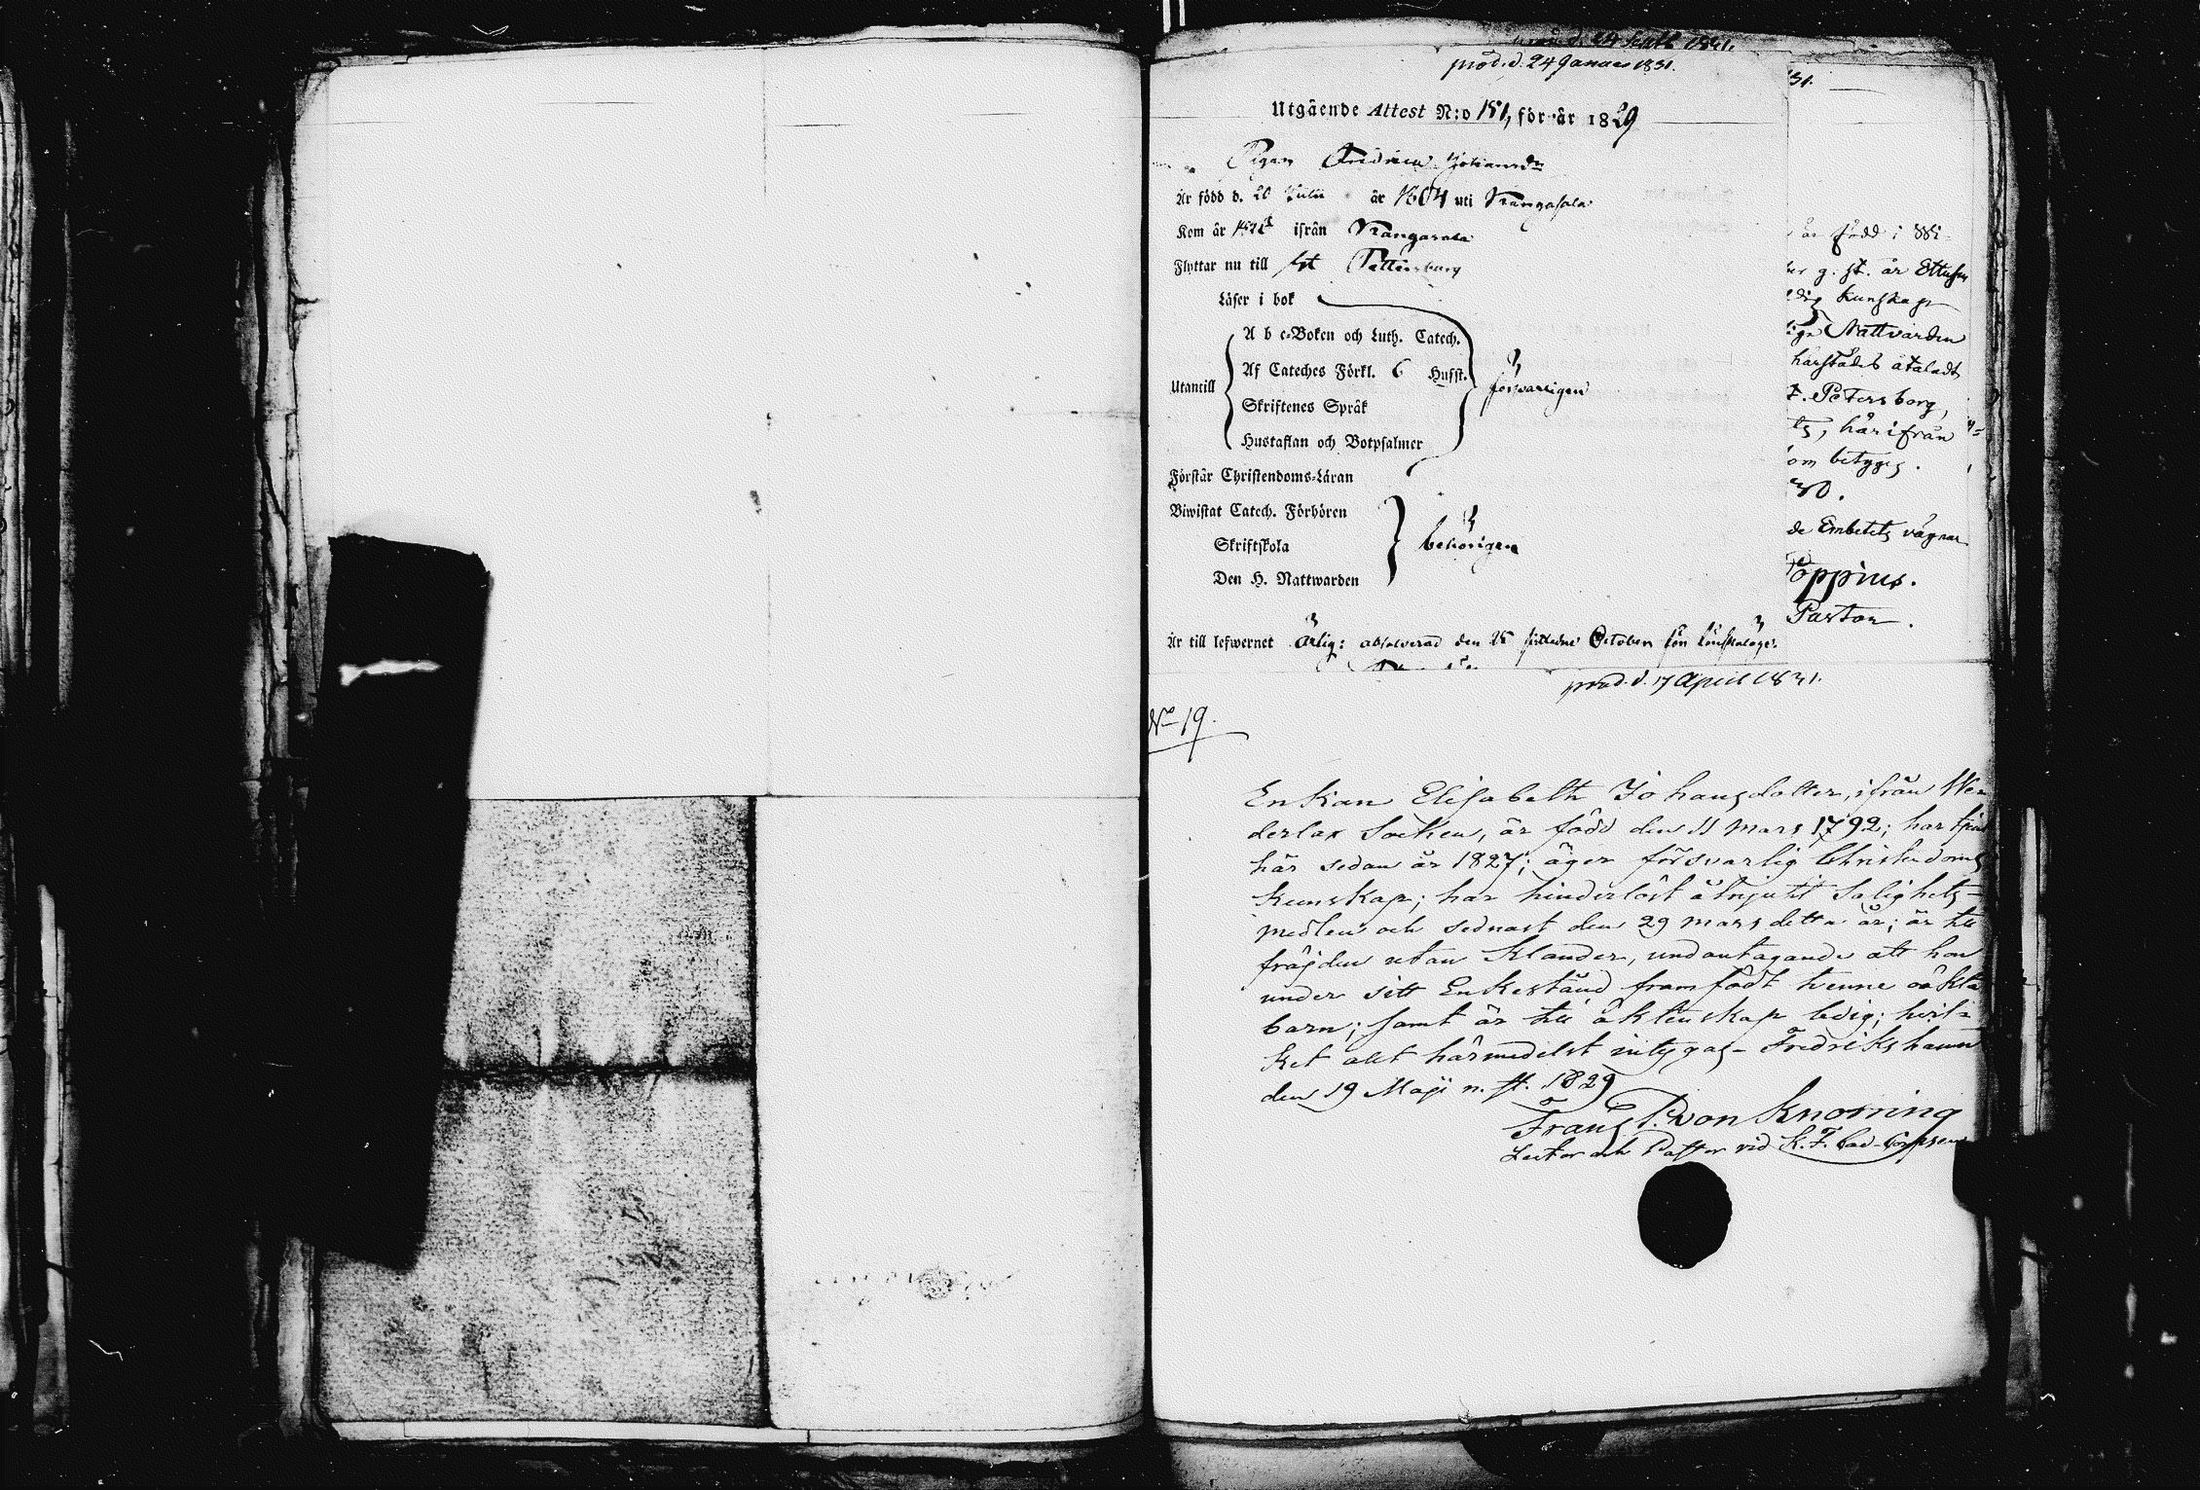 prod. d. 24 Januari 1831.
Utgående Attest N:o 151, för år 1829
Pigan Fredrica Johansdr
Är född d. 20 Julii år 1804 uti Kangasala
Kom år ifrån Kangasala
Flyttar nu till St Pettersburg
Läser i bok
A b c-Boken och Luth. Catech.
Af Cateches Förkl. 6 Hufst.
Utantill
försvarligen
Skriftenes Språk
Hustaflan och Botpsalmer
Förstår Christendoms-Läran
Biwistat Catech. Förhören
Skriftskola
behörigen
Den H. Nattwarden
Är till lefwernet ärlig: absolverad den 25 sistledne October för lönskaläge:
31.
är född i Wi-
g. st. är Ettusen
dig Kunskap
Nattvarden
härstädes åtaladt
t. Petersborg,
härifrån
om betygas.
30.
de Embetets vägnar
öppius.
Pastor.
prod. d. 17 April 1831.
No 19.
Enkan Elisabeth Johansdotter, ifrån We-
derlax Socken, är född den 11 Mars 1792; har tjent
här sedan år 1827; äger försvarlig Christendoms
Kunskap; har hinderlöst åtnjutit Salighets-
medlen och sednast den 29 Mars detta år; är till
fräjden utan Klander, undantagande att hon
under sitt Enkestånd framfödt tvenne oäkta
barn; samt är till äktenskap ledig; hvil-
ket allt härmedelst intygas - Fredrikshamn
den 19 Maji n. st. 1829
Frans P. von Knorring
Lector och Pastor vid K. F. Cad-Corpsen